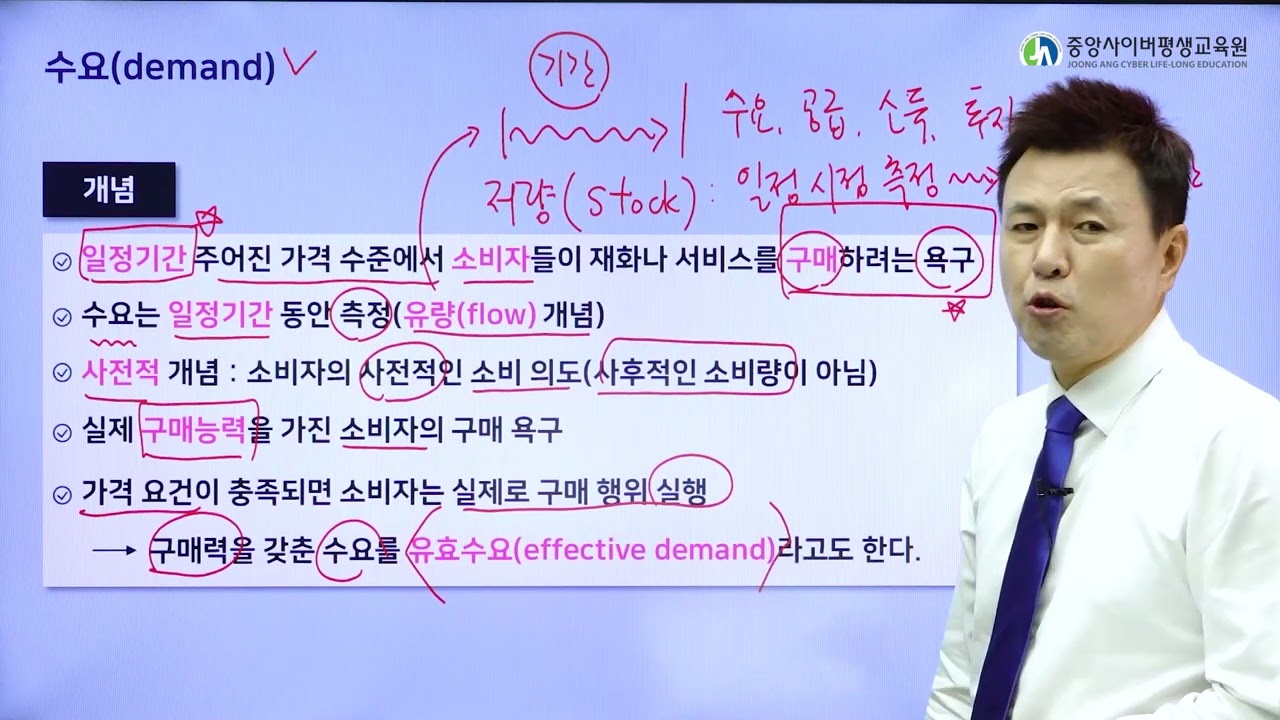 수요(demand)
중앙사이버평생교육원
JOONG ANG CYBER LIFE-LONG EDUCATION
기간
수요, 공급, 소득, 투자
저량(stock) : 일정시점 측정
개념
일정기간 주어진 가격 수준에서 소비자들이 재화나 서비스를 구매하려는 욕구
수요는 일정기간 동안 측정(유량(flow) 개념)
사전적 개념 : 소비자의 사전적인 소비 의도(사후적인 소비량이 아님)
실제 구매능력을 가진 소비자의 구매 욕구
가격 요건이 충족되면 소비자는 실제로 구매 행위 실행
→ 구매력을 갖춘 수요를 유효수요(effective demand)라고도 한다.